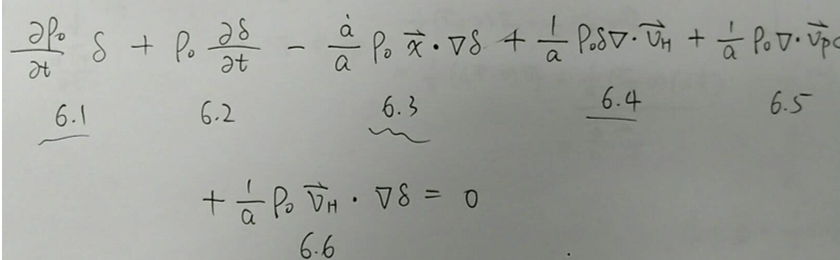 ∂ρ₀/∂t δ + ρ₀ ∂δ/∂t − ȧ/a ρ₀ x⃗ · ∇δ + 1/a ρ₀δ∇ · v⃗_H + 1/a ρ₀ ∇ · v⃗_pc
6.1 6.2 6.3 6.4 6.5
+ 1/a ρ₀ v⃗_H · ∇δ = 0
6.6